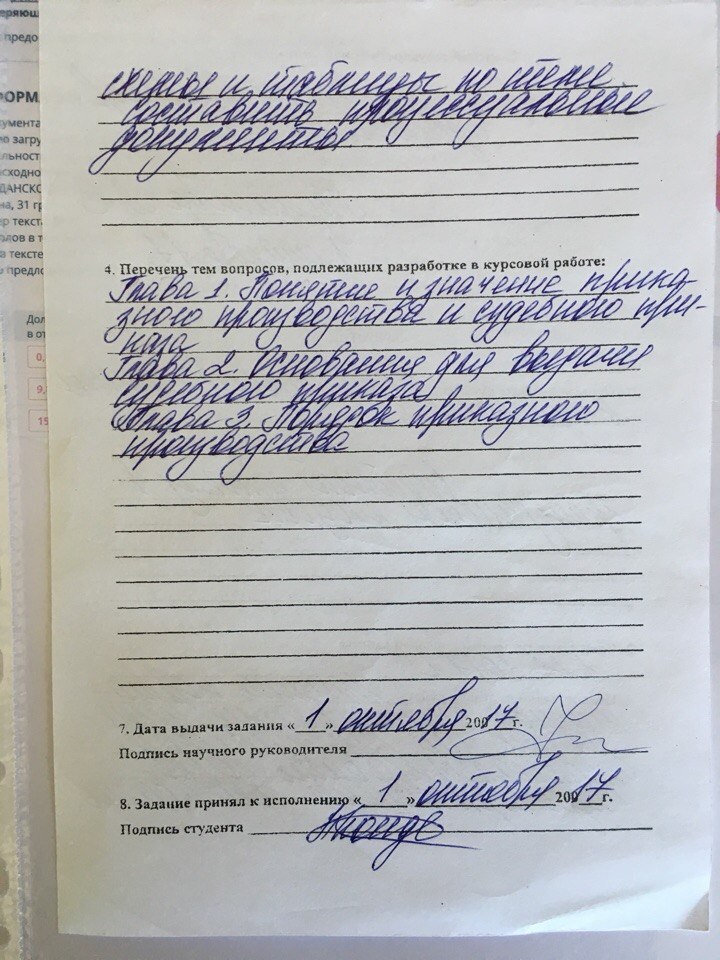 еряющ
предо
ФОРМА
умента
ю загру
льност
сходно
ДАНСКО
на, 31 гр
р текст
лов в т
в тексте
предло
Дол
в от
0,
9,
15
схемы и таблицы по теме
составить процессуальные
документы
4. Перечень тем вопросов, подлежащих разработке в курсовой работе:
Глава 1. Понятие и значение прика-
зного производства и судебного при-
каза
Глава 2. Основания для выдачи
судебного приказа
Глава 3. Порядок приказного
производства
7. Дата выдачи задания « 1 » октября 2017 г.
Подпись научного руководителя
8. Задание принял к исполнению « 1 » октября 20017 г.
Подпись студента